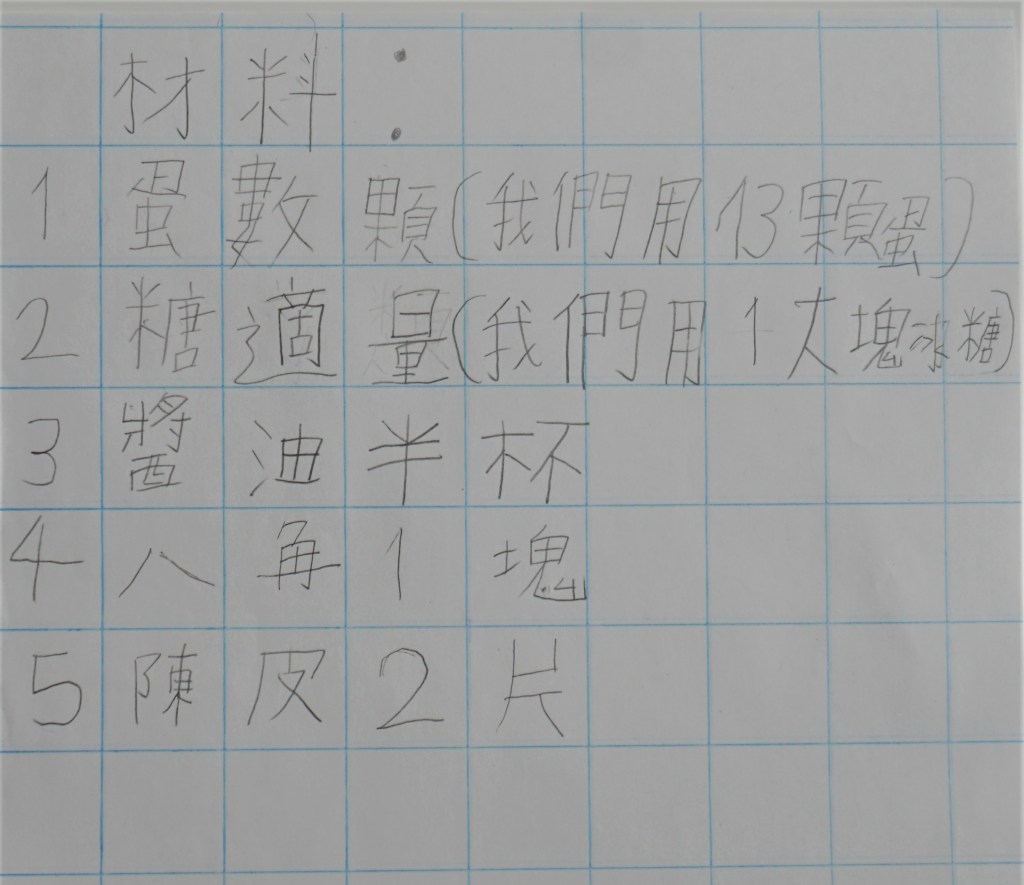 材料：
1 蛋數顆(我們用13顆蛋)
2 糖適量(我們用1大塊冰糖)
3 醬油半杯
4 八再1塊
5 陳皮2片